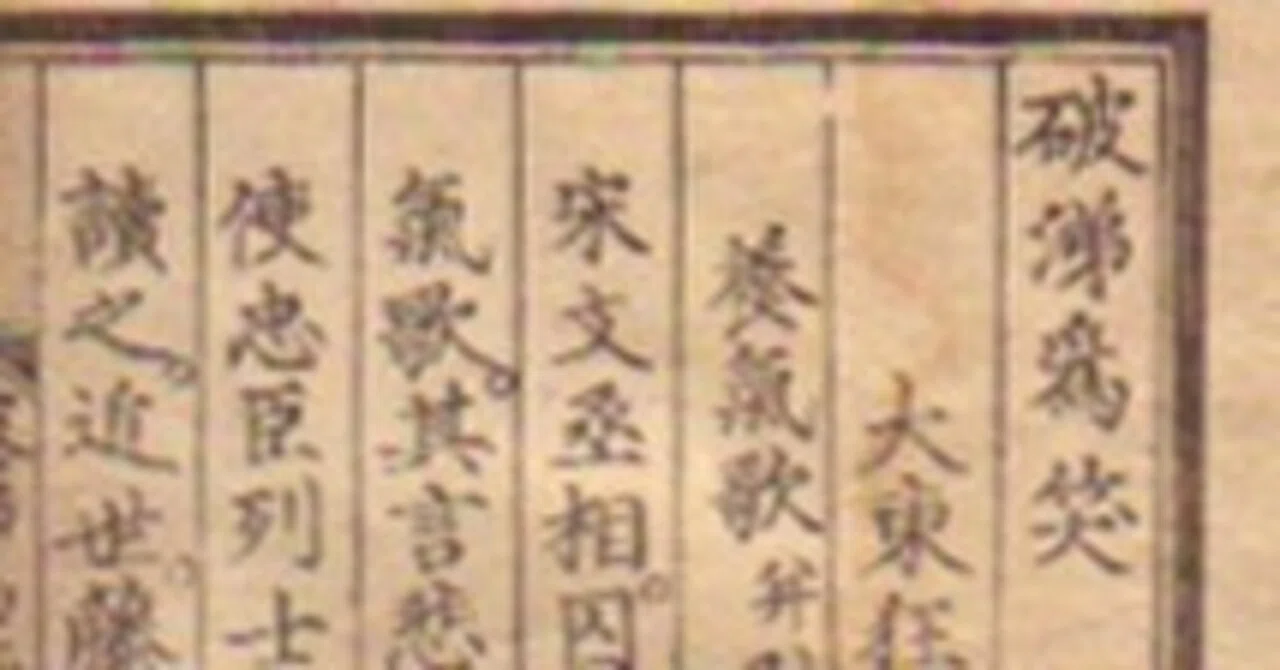 破涕為笑
大東狂
養氣歌 并
宋文丞相囚
氣歌其言悲
使忠臣列士
讀之近世藤